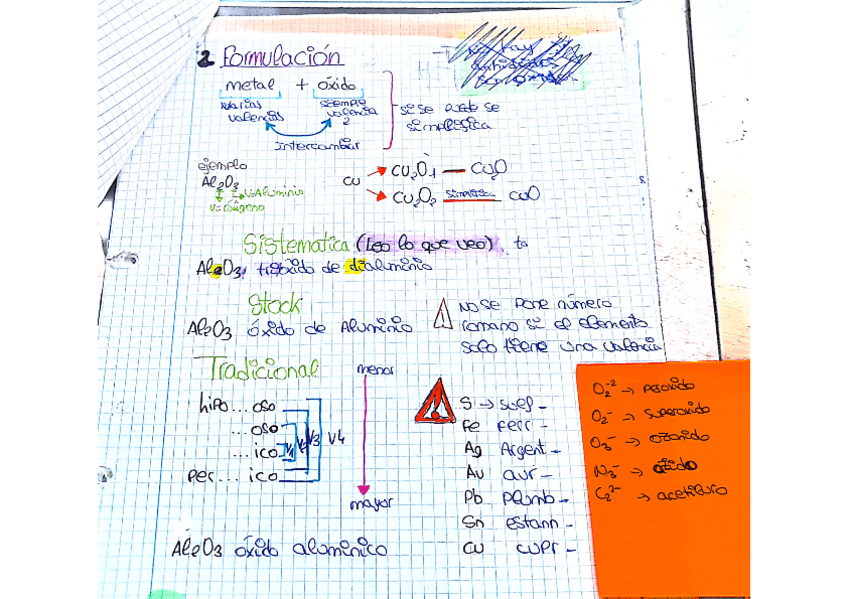 2 Formulación
metal + óxido
varias valencias
siempre valencia 2
Intercambiar
si se puede se
simplifica
ejemplo
Al2O3
V=Aluminio
V=oxígeno
Cu
Cu2O1 — Cu2O
Cu2O2 simplifica CuO
Sistematica (Leo lo que veo)
Al2O3: trióxido de dialuminio
Stock
Al2O3 óxido de Aluminio
No se pone número
romano si el elemento
solo tiene una valencia
Tradicional
menor
hipo... oso
... oso
... ico
per... ico
V1 V2 V3 V4
mayor
S → sulf -
Fe Ferr -
Ag Argent -
Au aur -
Pb plumb -
Sn estann -
Cu cupr -
Al2O3 óxido alumínico
O2-2 → peróxido
O2- → superóxido
O3- → ozonido
N3- →
C2 2- → acetiluro